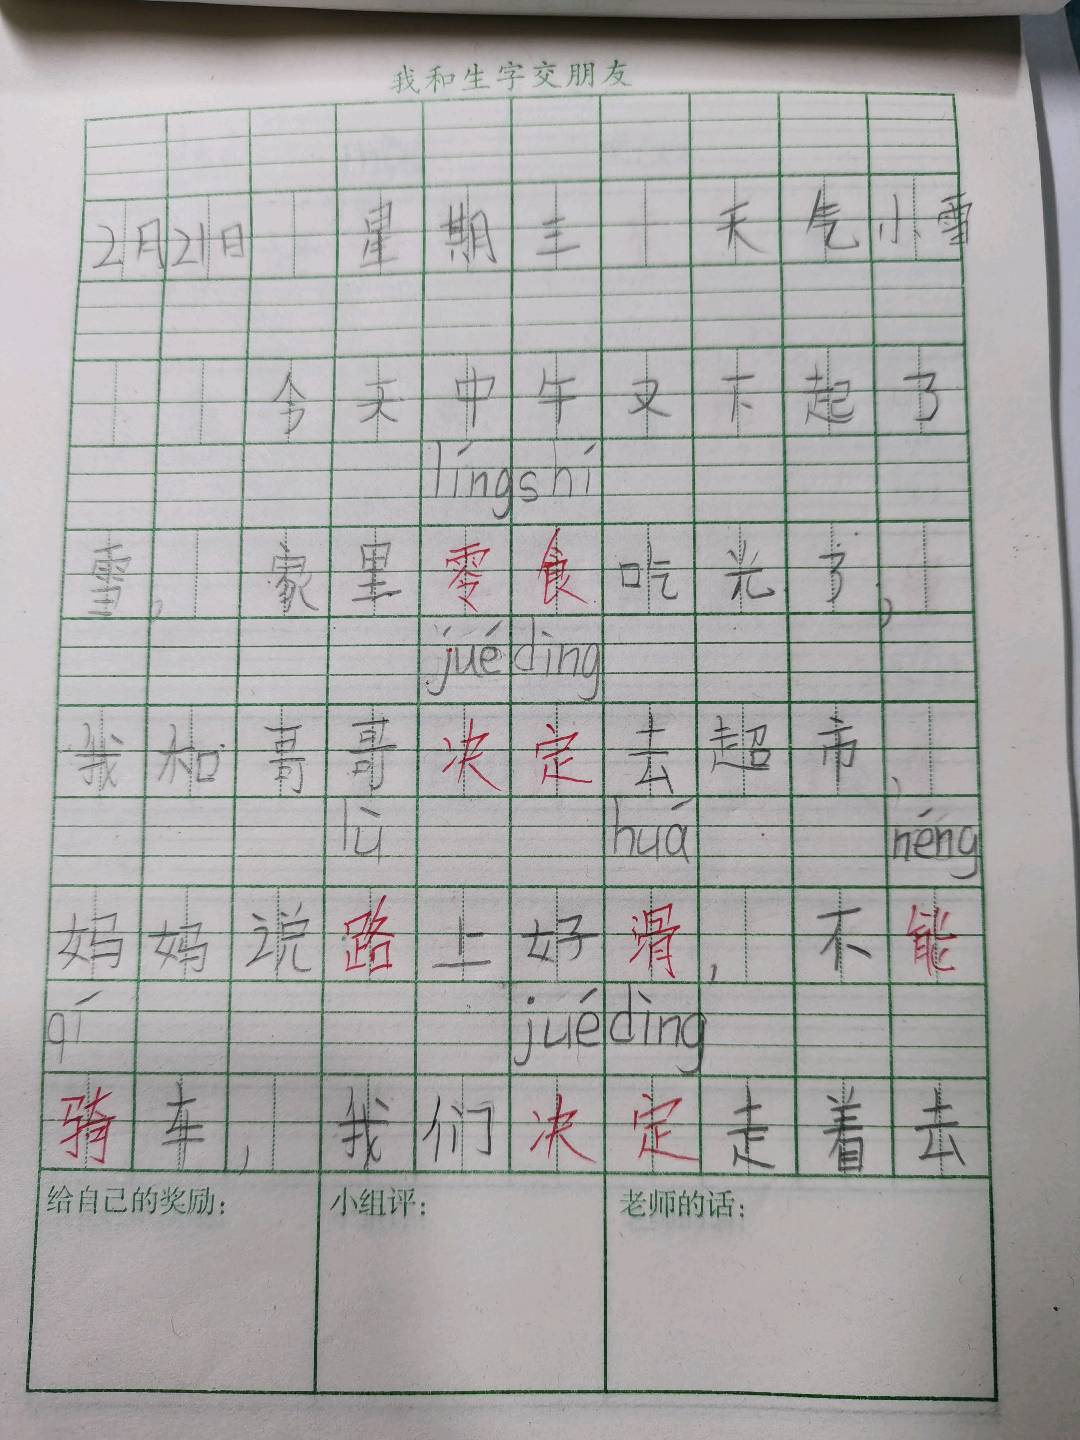 我和生字交朋友
2月21日 星期三 天气小雪
今天中午又下起了
língshí
雪，家里零食吃光了，
juédìng
我和哥哥决定去超市，
lù huá néng
妈妈说路上好滑，不能
qí juédìng
骑车，我们决定走着去
给自己的奖励： 小组评： 老师的话：